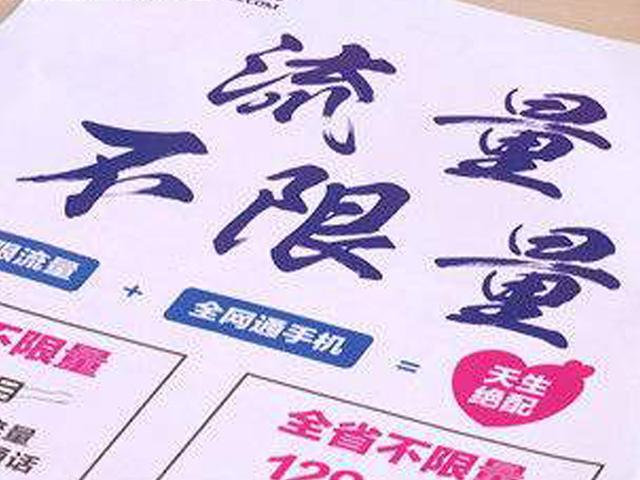 .COM
流量
不限量
限流量 + 全网通手机 = 天生
绝配
不限量
月
流量
通话
全省不限量
129